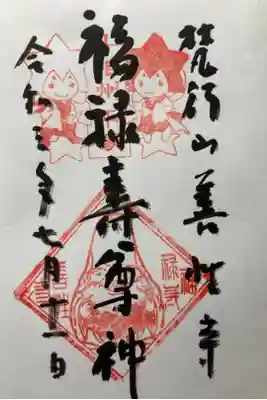 梵行山善性寺
福禄寿尊神
令和三年七月十一日